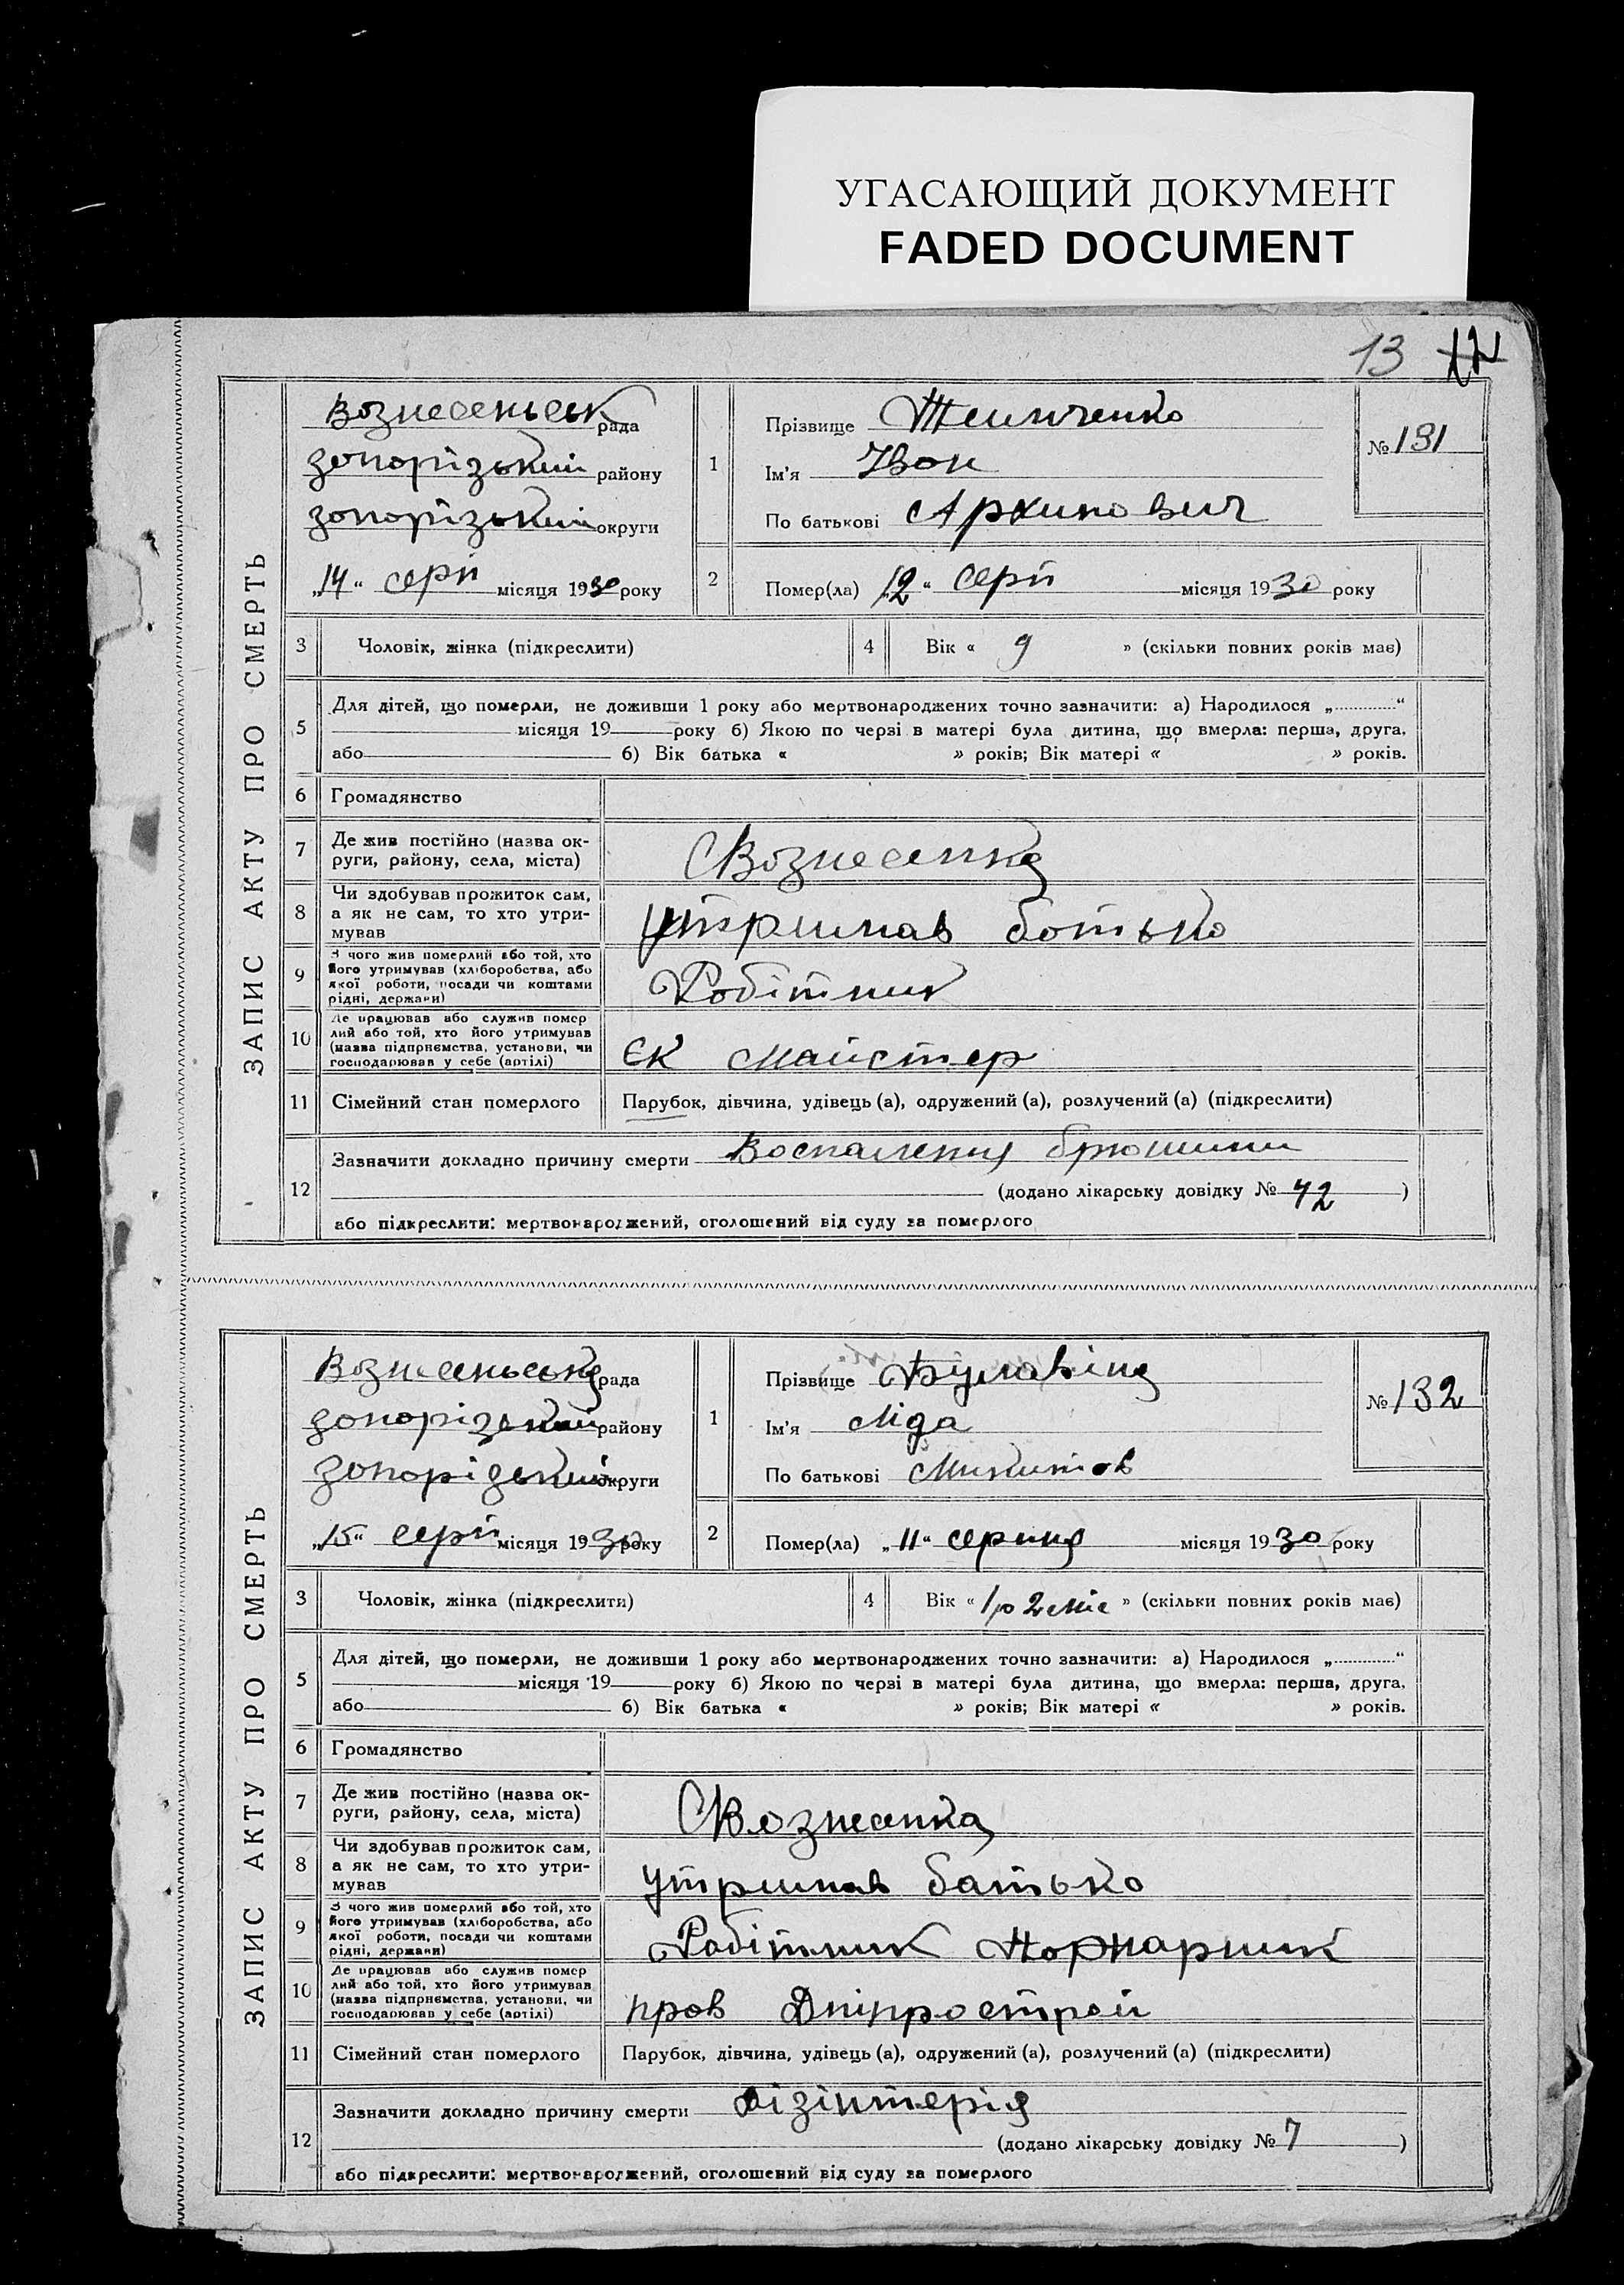 УГАСАЮЩИЙ ДОКУМЕНТ
FADED DOCUMENT
13 12
ЗАПИС АКТУ ПРО СМЕРТЬ
Вознесеньськ рада
запорізький району
запорізький округи
„14“ серп місяця 1930 року
1
Прізвище
Ім'я Іван
По батькові Архипович
№ 131
2 Помер(ла) „12“ серп місяця 1930 року
3 Чоловік, жінка (підкреслити)
4 Вік « 9 » (скільки повних років має)
5 Для дітей, що померли, не доживши 1 року або мертвонароджених точно зазначити: а) Народилося „ “
місяця 19 року б) Якою по черзі в матері була дитина, що вмерла: перша, друга,
або б) Вік батька « » років; Вік матері « » років.
6 Громадянство
7 Де жив постійно (назва ок-
руги, району, села, міста)
С Вознесенка
8 Чи здобував прожиток сам,
а як не сам, то хто утри-
мував
утримав батько
9 З чого жив померлий або той, хто
його утримував (хліборобства, або
якої роботи, посади чи коштами
рідні, держави)
Робітник
10 Де працював або служив помер
лий або той, хто його утримував
(назва підприємства, установи, чи
господарював у себе (артілі)
ЄК майстер
11 Сімейний стан померлого Парубок, дівчина, удівець (а), одружений (а), розлучений (а) (підкреслити)
12 Зазначити докладно причину смерти Воспаления брюшини
(додано лікарську довідку № 42 )
або підкреслити: мертвонароджений, оголошений від суду за померлого
ЗАПИС АКТУ ПРО СМЕРТЬ
Вознесеньська рада
запорізький району
запорізький округи
„15“ серп місяця 1930 року
1
Прізвище Булавіна
Ім'я Ліда
По батькові Микитов
№ 132
2 Помер(ла) „11“ серпня місяця 1930 року
3 Чоловік, жінка (підкреслити)
4 Вік « 1 ро 2 міс » (скільки повних років має)
5 Для дітей, що померли, не доживши 1 року або мертвонароджених точно зазначити: а) Народилося „ “
місяця 19 року б) Якою по черзі в матері була дитина, що вмерла: перша, друга,
або б) Вік батька « » років; Вік матері « » років.
6 Громадянство
7 Де жив постійно (назва ок-
руги, району, села, міста)
С Вознесенка
8 Чи здобував прожиток сам,
а як не сам, то хто утри-
мував
утримав батько
9 З чого жив померлий або той, хто
його утримував (хліборобства, або
якої роботи, посади чи коштами
рідні, держави)
Робітник
10 Де працював або служив помер
лий або той, хто його утримував
(назва підприємства, установи, чи
господарював у себе (артілі)
пров Дніпрострой
11 Сімейний стан померлого Парубок, дівчина, удівець (а), одружений (а), розлучений (а) (підкреслити)
12 Зазначити докладно причину смерти дізінтерія
(додано лікарську довідку № 7 )
або підкреслити: мертвонароджений, оголошений від суду за померлого